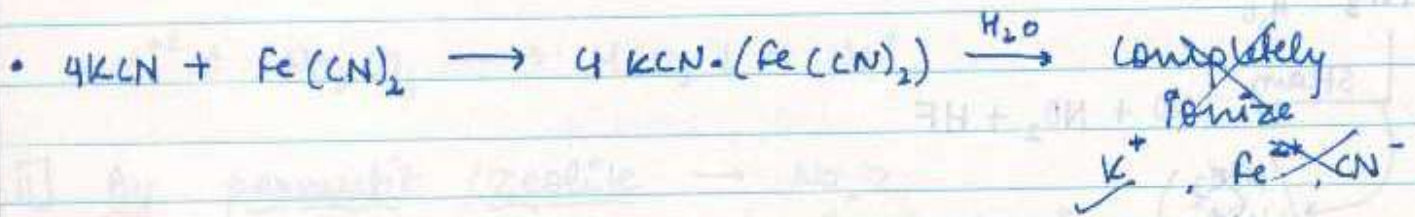 • 4KCN + Fe(CN)₂ ⟶ 4 KCN•(Fe(CN)₂) ⟶ H₂O Completely
Ionize
K⁺, Fe²⁺, CN⁻